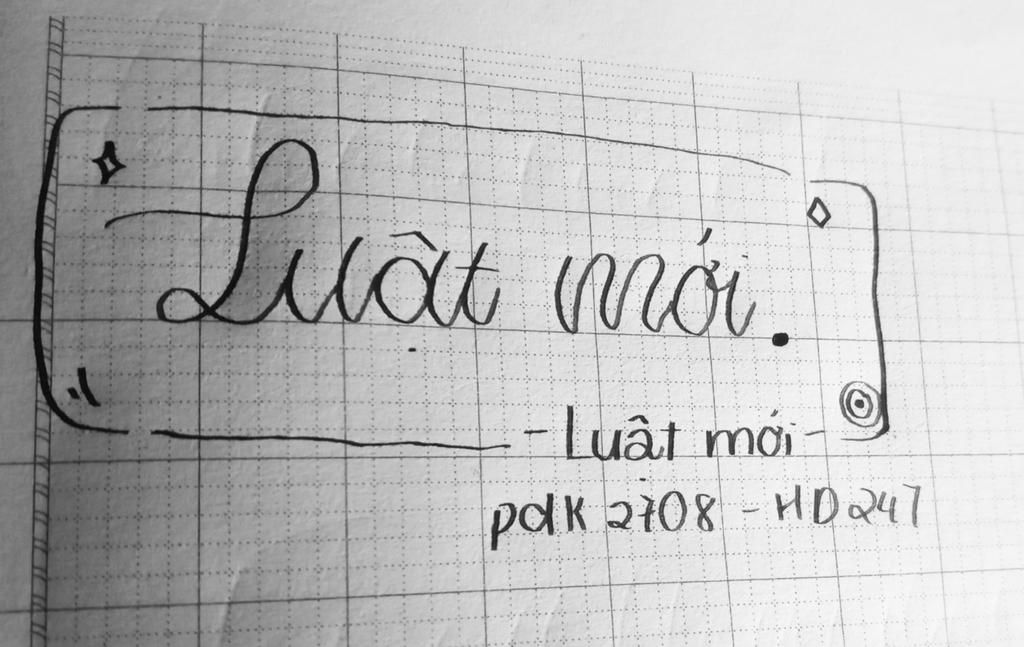 Luật mới.
- Luật mới -
pdk 2708 - HD247